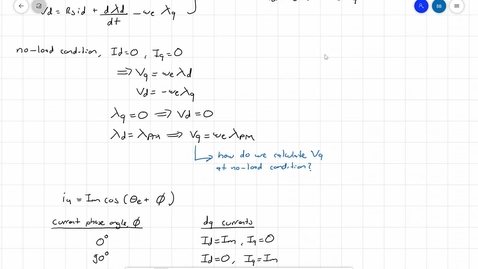 Vd = Rsid + dλd/dt - ωe λq
no-load condition, Id=0, Iq=0
⟹ Vq = ωe λd
Vd = -ωe λq
λq = 0 ⟹ Vd = 0
λd = λPM ⟹ Vq = ωe λPM
how do we calculate Vq
at no-load condition?
ia = Im cos (θe + ϕ)
current phase angle, ϕ dq currents
0° Id = Im, Iq = 0
90° Id = 0, Iq = Im